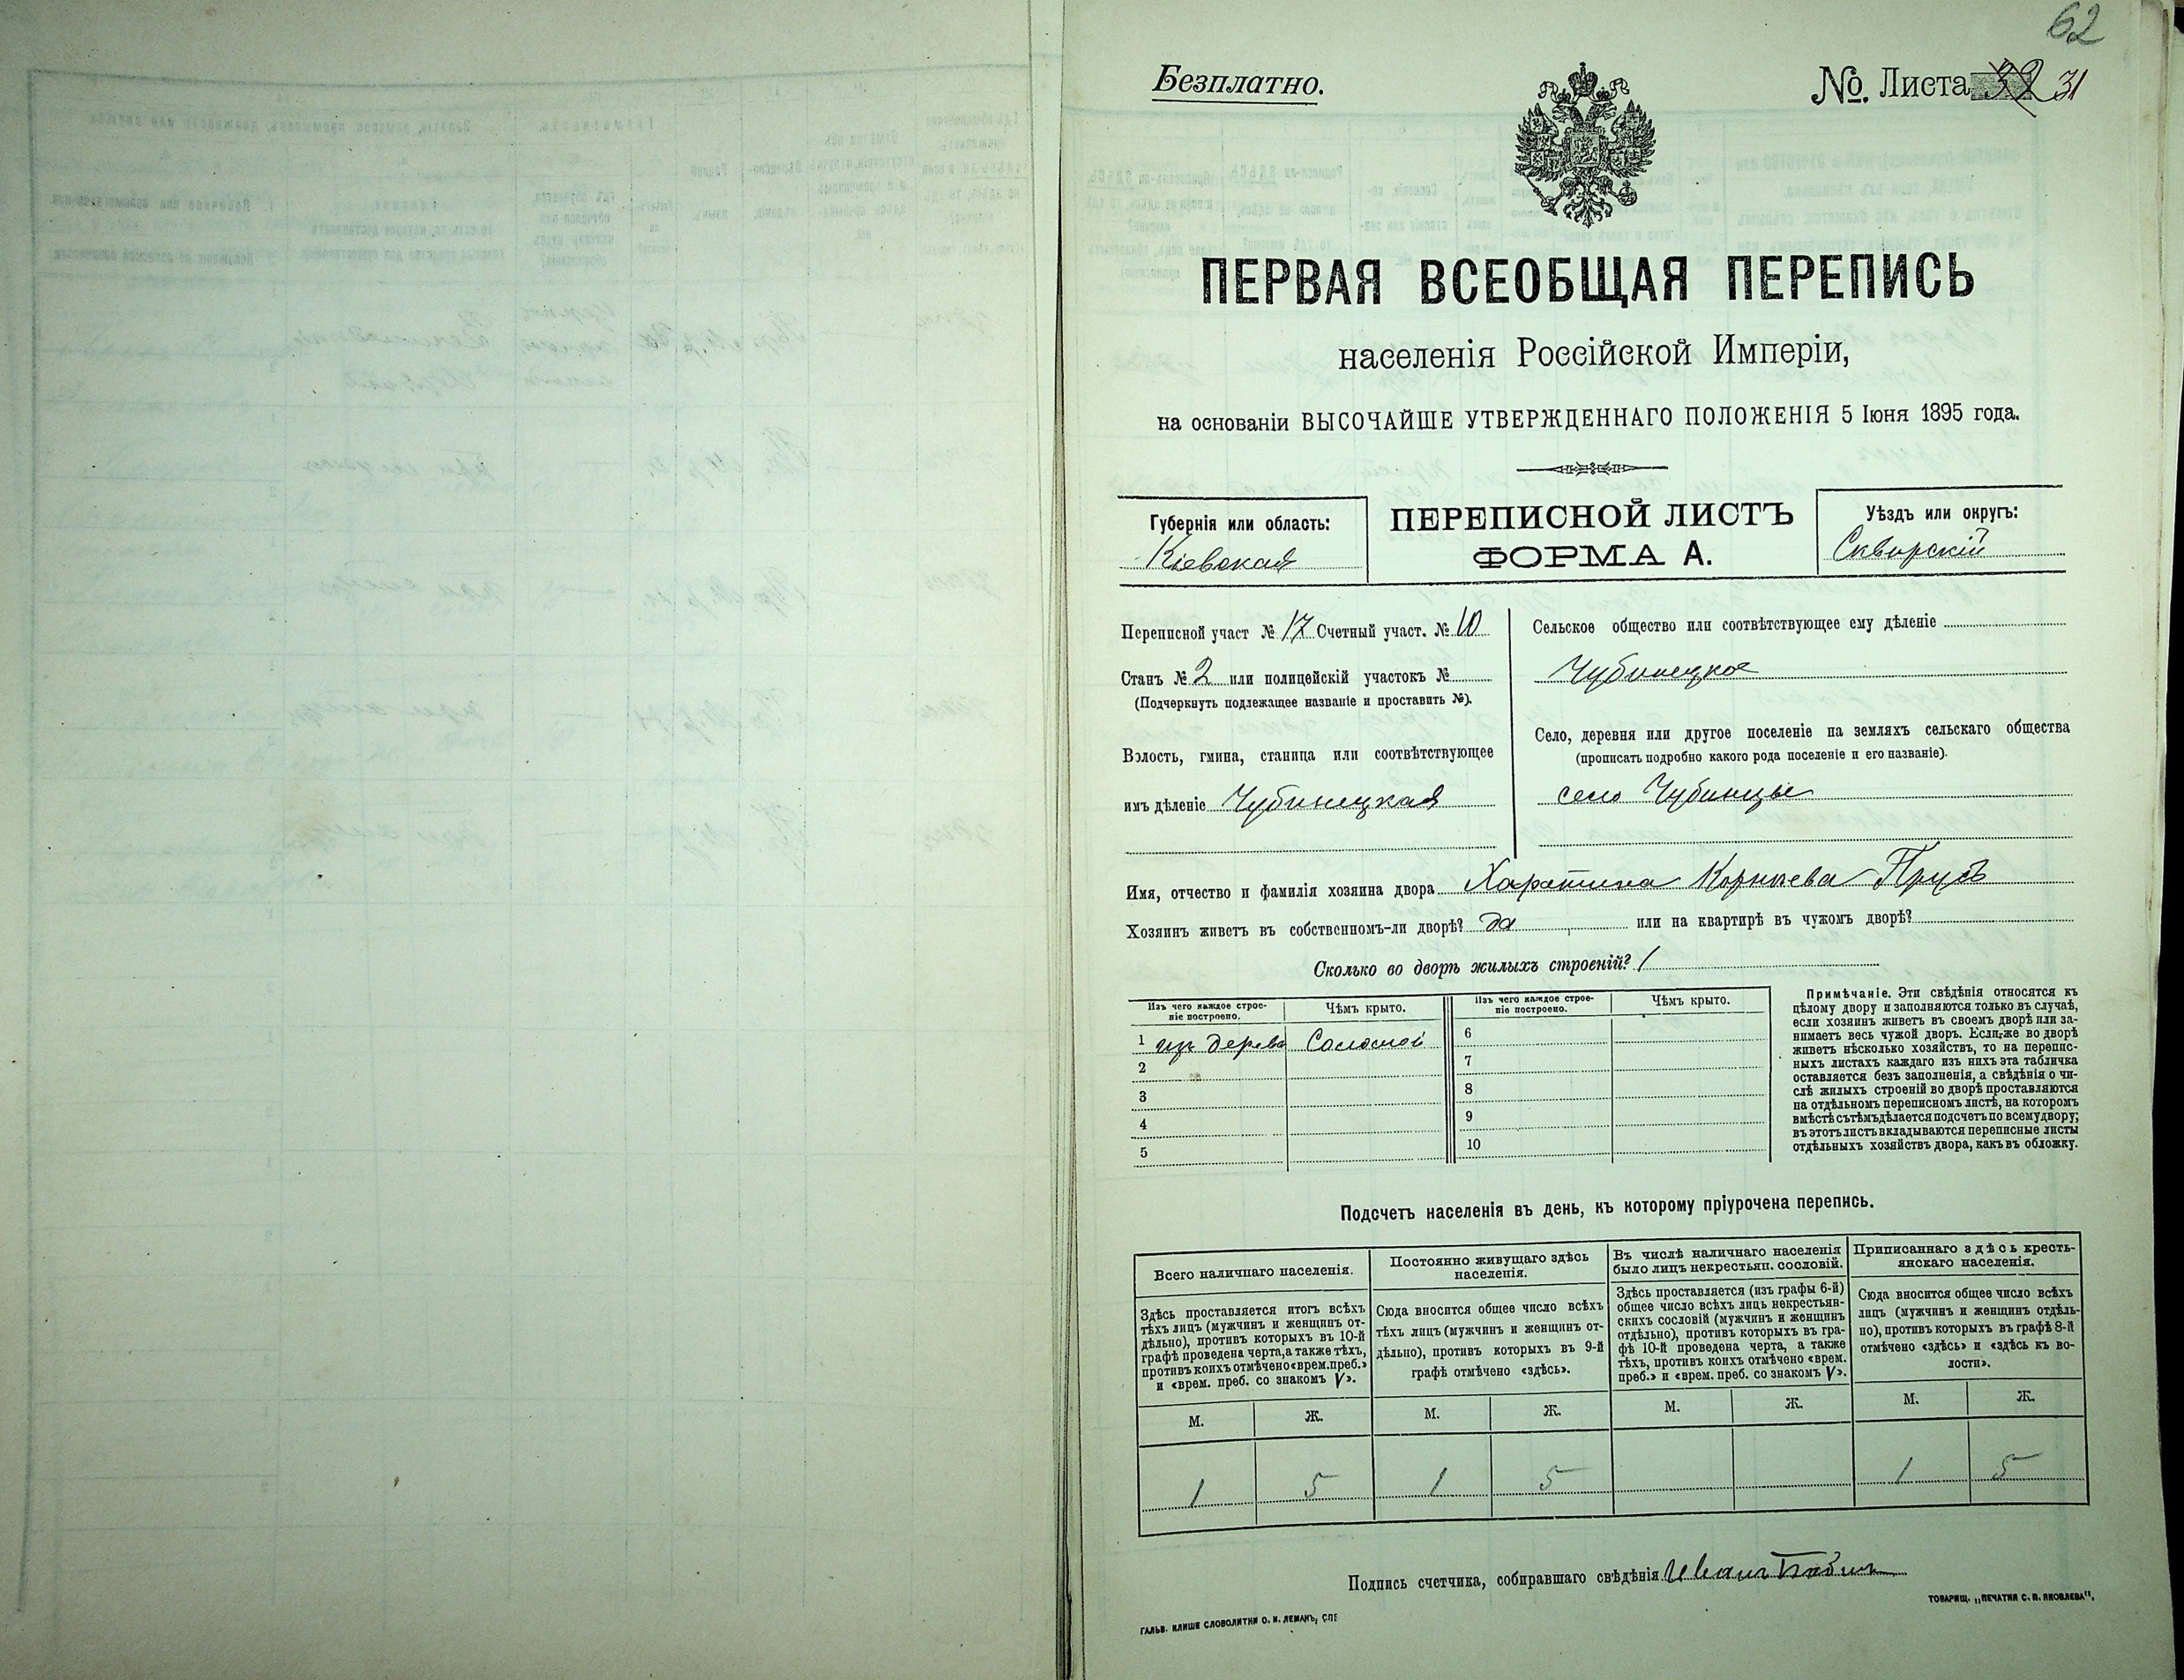 62
Безплатно.
№. Листа 32 31
ПЕРВАЯ ВСЕОБЩАЯ ПЕРЕПИСЬ
населенія Россійской Имперіи,
на основаніи ВЫСОЧАЙШЕ УТВЕРЖДЕННАГО ПОЛОЖЕНІЯ 5 Іюня 1895 года.
Губернія или область:
Кіевская
ПЕРЕПИСНОЙ ЛИСТЪ
ФОРМА А.
Уѣздъ или округъ:
Сквирскій
Переписной участ № 17 Счетный участ. № 10
Станъ № 2 или полицейскій участокъ №
(Подчеркнуть подлежащее названіе и проставить №).
Волость, гмина, станица или соотвѣтствующее
имъ дѣленіе Чубинецкая
Сельское общество или соотвѣтствующее ему дѣленіе
Чубинецкое
Село, деревня или другое поселеніе на земляхъ сельскаго общества
(прописать подробно какого рода поселеніе и его названіе).
село Чубинцы
Имя, отчество и фамилія хозяина двора Харитина Корнѣева Прусъ
Хозяинъ живетъ въ собственномъ-ли дворѣ? да или на квартирѣ въ чужомъ дворѣ?
Сколько во дворѣ жилыхъ строеній? 1
Изъ чего каждое строе-
ніе построено.
Чѣмъ крыто.
Изъ чего каждое строе-
ніе построено.
Чѣмъ крыто.
1 изъ дерева Соломой 6
2 7
3 8
4 9
5 10
Примѣчаніе. Эти свѣдѣнія относятся къ
цѣлому двору и заполняются только въ случаѣ,
если хозяинъ живетъ въ своемъ дворѣ или за-
нимаетъ весь чужой дворъ. Если-же во дворѣ
живетъ нѣсколько хозяйствъ, то на перепис-
ныхъ листахъ каждаго изъ нихъ эта табличка
оставляется безъ заполненія, а свѣдѣнія о чи-
слѣ жилыхъ строеній во дворѣ проставляются
на отдѣльномъ переписномъ листѣ, на которомъ
вмѣстѣ съ тѣмъ дѣлается подсчетъ по всему двору;
въ этотъ листъ вкладываются переписные листы
отдѣльныхъ хозяйствъ двора, какъ въ обложку.
Подсчетъ населенія въ день, къ которому пріурочена перепись.
Всего наличнаго населенія.
Здѣсь проставляется итогъ всѣхъ
тѣхъ лицъ (мужчинъ и женщинъ от-
дѣльно), противъ которыхъ въ 10-й
графѣ проведена черта, а также тѣхъ,
противъ коихъ отмѣчено «врем. преб.»
и «врем. преб. со знакомъ V».
Постоянно живущаго здѣсь
населенія.
Сюда вносится общее число всѣхъ
тѣхъ лицъ (мужчинъ и женщинъ от-
дѣльно), противъ которыхъ въ 9-й
графѣ отмѣчено «здѣсь».
Въ числѣ наличнаго населенія
было лицъ некрестьян. сословій.
Здѣсь проставляется (изъ графы 6-й)
общее число всѣхъ лицъ некрестьян-
скихъ сословій (мужчинъ и женщинъ
отдѣльно), противъ которыхъ въ гра-
фѣ 10-й проведена черта, а также
тѣхъ, противъ коихъ отмѣчено «врем.
преб.» и «врем. преб. со знакомъ V».
Приписаннаго здѣсь кресть-
янскаго населенія.
Сюда вносится общее число всѣхъ
лицъ (мужчинъ и женщинъ отдѣль-
но), противъ которыхъ въ графѣ 8-й
отмѣчено «здѣсь» и «здѣсь къ во-
лости».
М. Ж. М. Ж. М. Ж. М. Ж.
1 5 1 5 1 5
Подпись счетчика, собиравшаго свѣдѣнія Иванъ
ГАЛЬВ. КЛИШЕ СЛОВОЛИТНИ О. И. ЛЕМАНЪ, СПБ
ТОВАРИЩ. „ПЕЧАТНЯ С. П. ЯКОВЛЕВА",